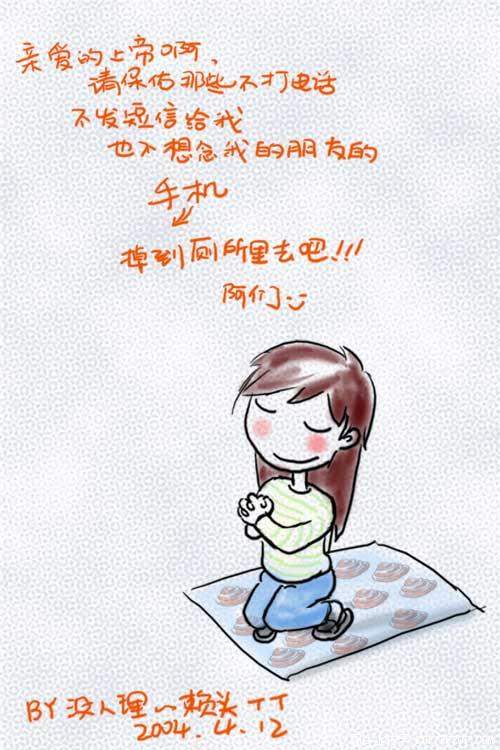 亲爱的上帝啊,
请保佑那些不打电话
不发短信给我
也不想念我的朋友的
手机
掉到厕所里去吧!!!
阿们
BY 没人理~赖头TT
2004.4.12